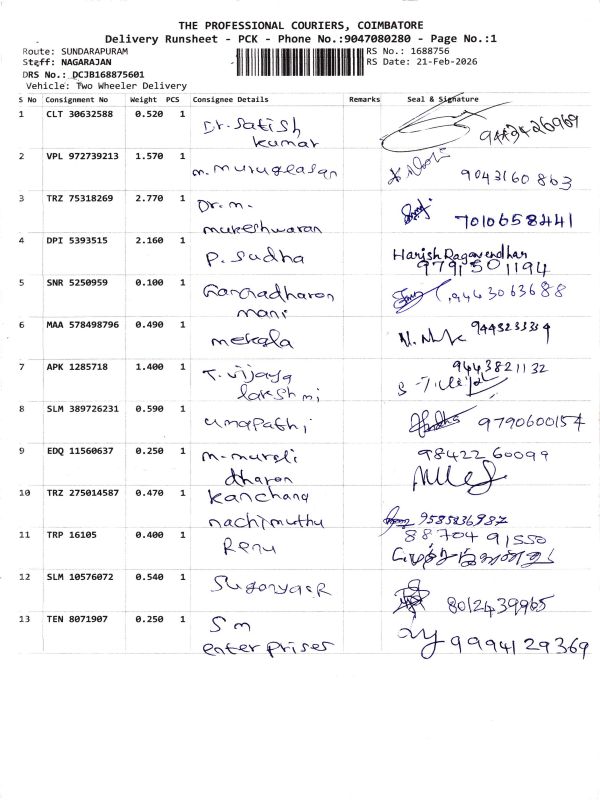 THE PROFESSIONAL COURIERS, COIMBATORE
Delivery Runsheet - PCK - Phone No.:9047080280 - Page No.:1
Route: SUNDARAPURAM RS No.: 1688756
Staff: NAGARAJAN RS Date: 21-Feb-2026
DRS No.: DCJB168875601
Vehicle: Two Wheeler Delivery
S No Consignment No Weight PCS Consignee Details Remarks Seal & Signature
1 CLT 30632588 0.520 1 Dr. Satish
kumar
2 VPL 972739213 1.570 1 m. murugeasan 9043160863
3 TRZ 75318269 2.770 1 Dr. m.
mukeshwaran 7010658441
4 DPI 5393515 2.160 1 P. Sudha Harish Ragavendhar
9791501194
5 SNR 5250959 0.100 1 Gangadharan 9443063688
mani
6 MAA 578498796 0.490 1 mekala
7 APK 1285718 1.400 1 T. vijaya 9443821132
lakshmi
8 SLM 389726231 0.590 1 umapathi 9790600154
9 EDQ 11560637 0.250 1 m. murali 9842260099
dharan
10 TRZ 275014587 0.470 1 kanchana
nachimuthu 9585836987
11 TRP 16105 0.400 1 Renu 8870491550
12 SLM 10576072 0.540 1 8012439965
13 TEN 8071907 0.250 1 Sm
enterprises 9994129369